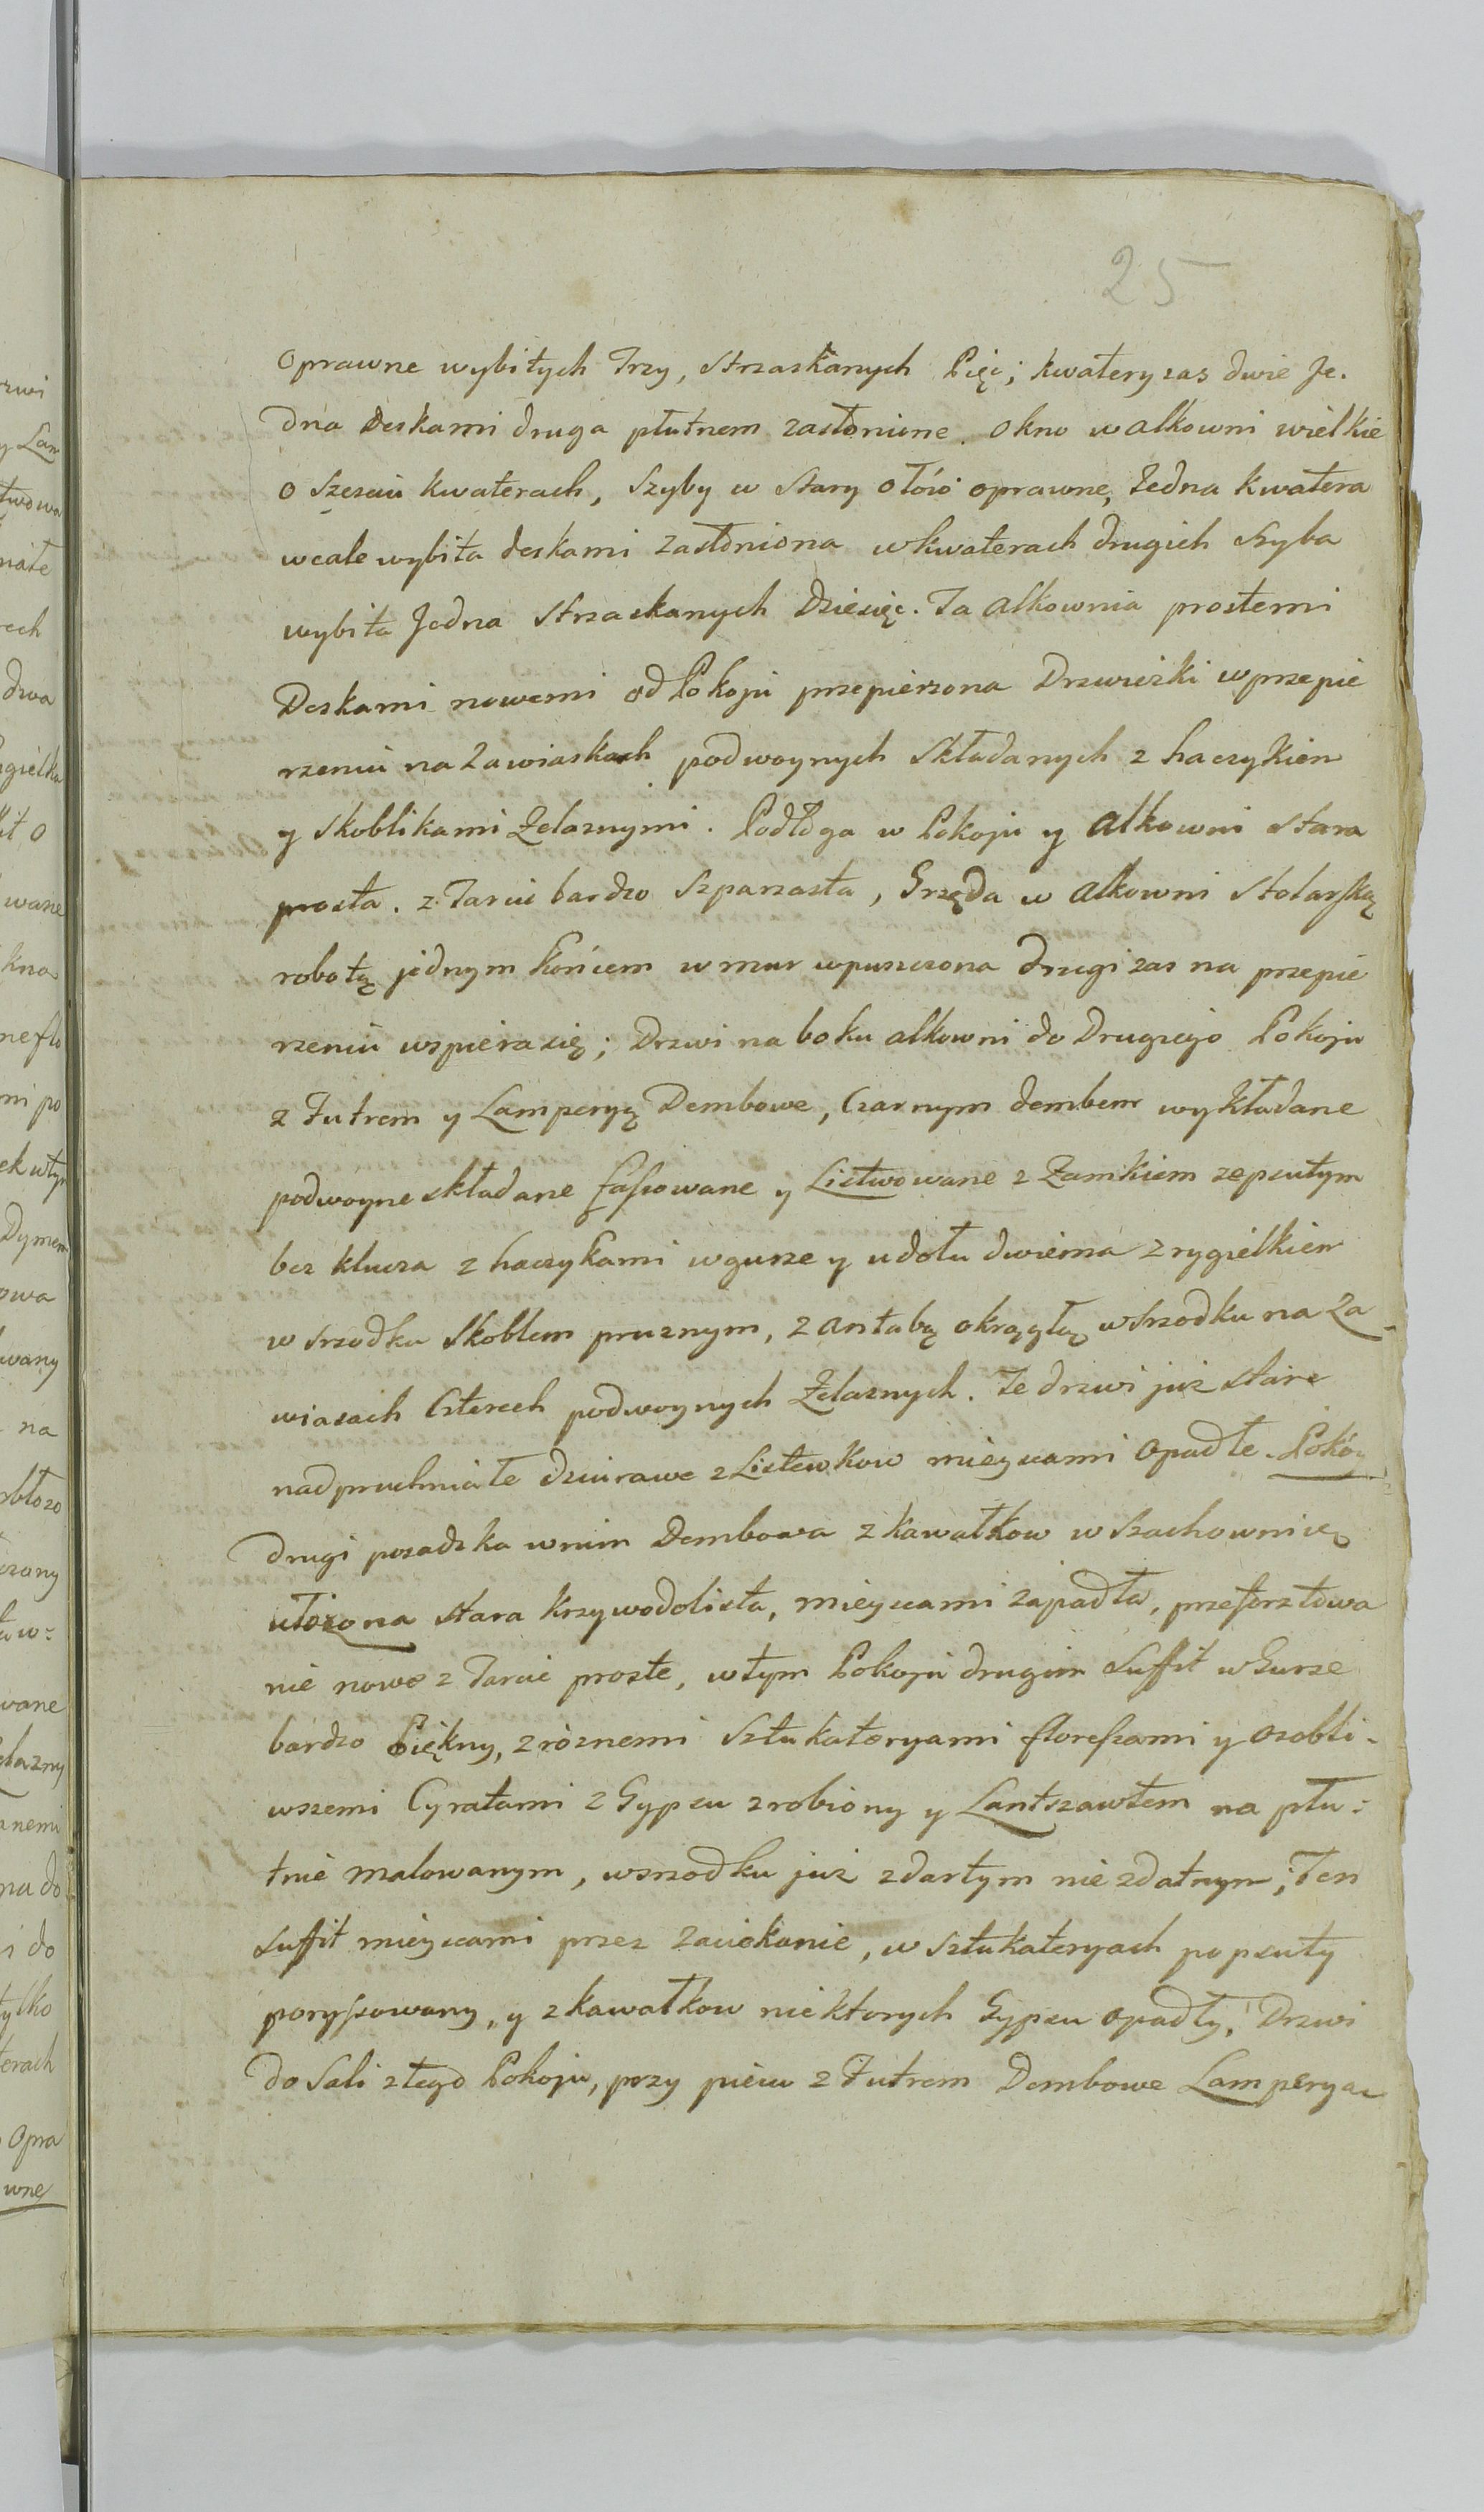 25
oprawne wybitych Trzy, strzaskanych Pięć; kwatery zas dwie Je.
dna Deskami druga płutnem zasłonione. okno w alkowni wielkie
o szesciu kwaterach, szyby w stary ołów oprawne, Jedna kwatera
wcale wybita deskami zasłoniona w kwaterach drugich szyba
wybita Jedna strzaskanych dziesięc. Ta alkownia prostemi
Deskami nowemi od Pokoju przepierzona Drzwiczki w przepie
rzeniu na zawiaskach podwoynych składanych z haczykiem
y skoblikami Żelaznymi. Podłoga w Pokoju y alkowni stara
prosta. z Tarcic bardzo szparzasta, Grzęda w alkowni stolarską
robotą jednym końcem w mur wpuszczona drugi zas na przepie
rzeniu wspiera się; Drzwi na boku alkowni do Drugiego Pokoju
z Futrem y Lamperyą Dembowe, Czarnym dembem wykładane
podwoyne składane fassowane y Listwowane z Zamkiem zepsutym
bez klucza z haczykami w gurze y u dołu dwiema z rygielkiem
w srzodku skoblem pruznym, z antabą okrągłą w srzodku na Za
wiasach Czterech podwoynych Żelaznych. Te drzwi już stare
nadpruchniałe dziurawe z Listewkow mieyscami opadłe. Pokóy
drugi posadzka w nim Dembowa z kawałkow w szachownicę
ułożona stara krzywodolista, mieyscami zapadła, przeforsztowa
nie nowe z Tarcic proste, w tym Pokoju drugim Suffit w Gurze
bardzo Piękny, z róznemi sztukatoryami floressami y osobli-
wszemi Cyratami z Gypsu zrobiony y Lantszawtem na płu:
tnie malowanym, w srzodku już zdartym nie zdatnym; Ten
suffit mieyscami przez zaciekanie, w sztukateryach popsuty
poryssowany, y z kawałkow niektorych Gypsu opadły, Drzwi
do Sali z tego Pokoju, przy piecu z Futrem Dembowe Lamperya